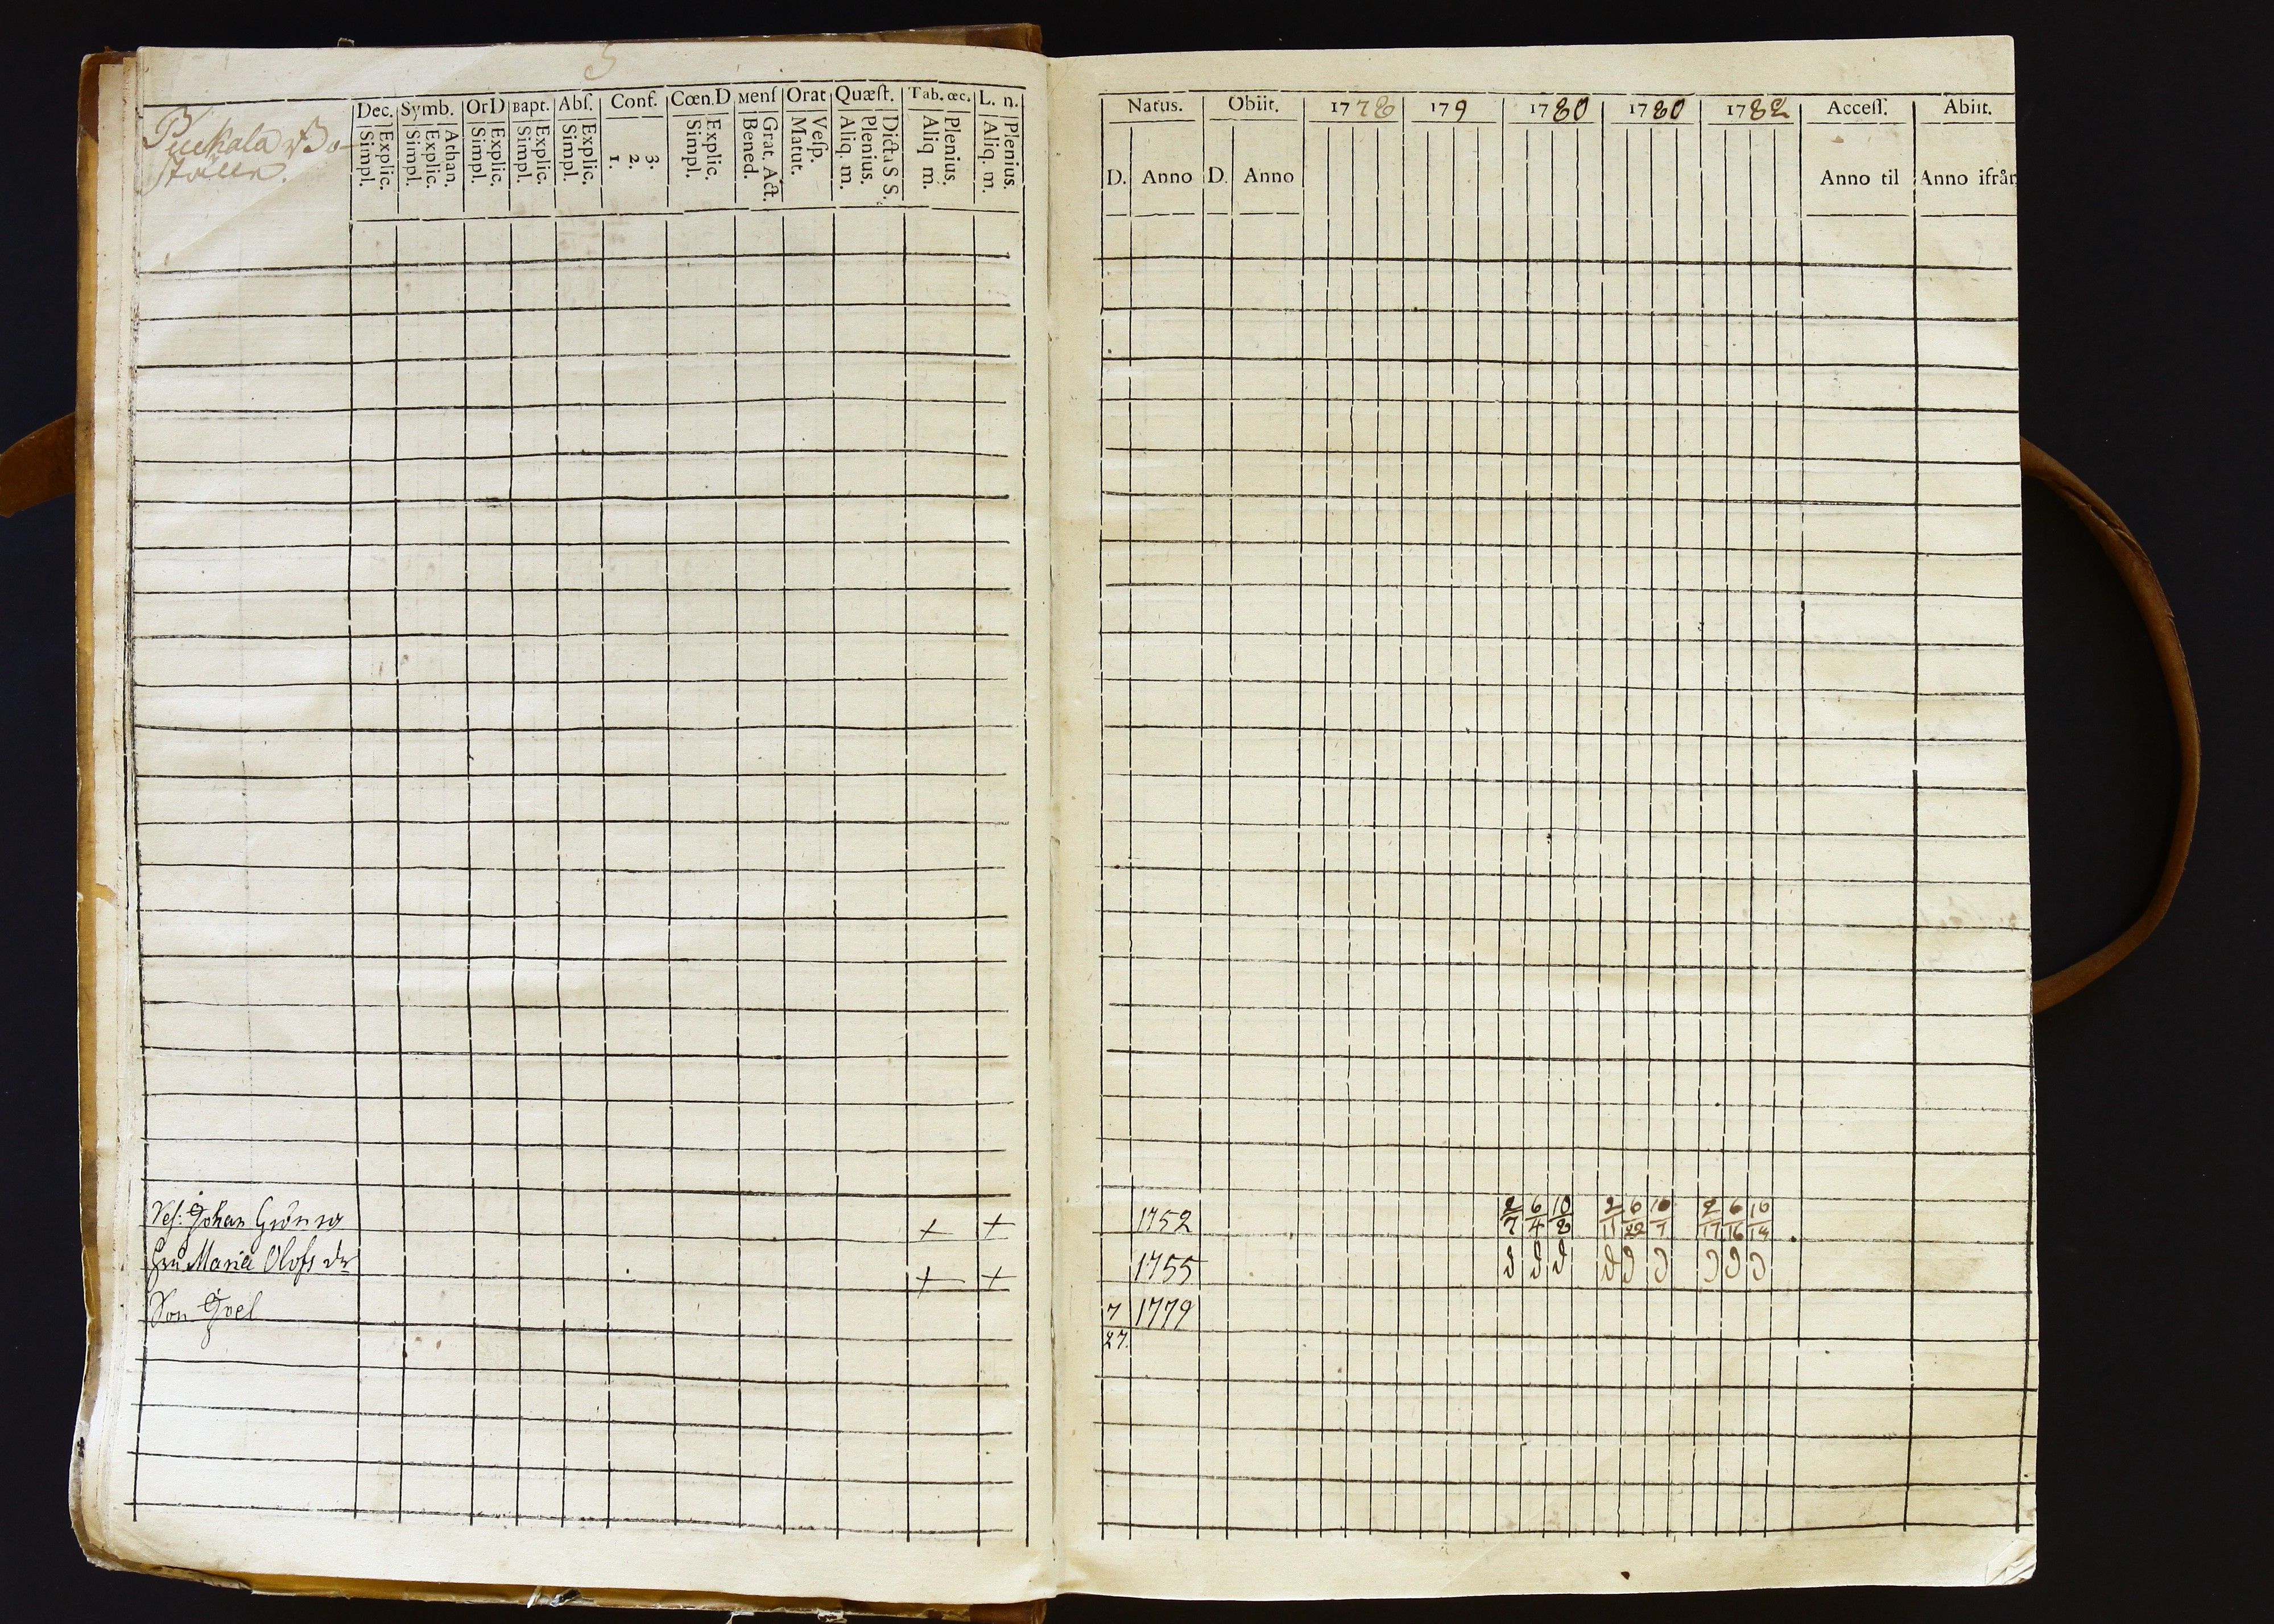 5
Puckala Bo-
ställe.
Dec. Symb. OrD Bapt. Abſ. Conf. Cœn.D Menſ Orat Quæſt. Tab. œc. L. n.
Simpl. Explic. Simpl. Explic. Athan. Simpl. Explic. Simpl. Explic. Simpl. Explic. 1. 2. 3. Simpl. Explic. Bened. Grat. Act. Matut. Veſp. Aliq. m. Plenius. Dicta S S. Aliq m. Plenius. Aliq. m. Plenius.
Johan + +
Maria Olofs dr + +
Son Joel
Natus. Obiit. 1778 179 1780 1780 1782 Acceſſ. Abiit.
D. Anno D. Anno Anno til Anno ifrån
1752 2/7 6/4 10/8 2/11 6/22 10/7 2/17 6/16 10/14
1755 d d d d d d d d d
7/27. 1779